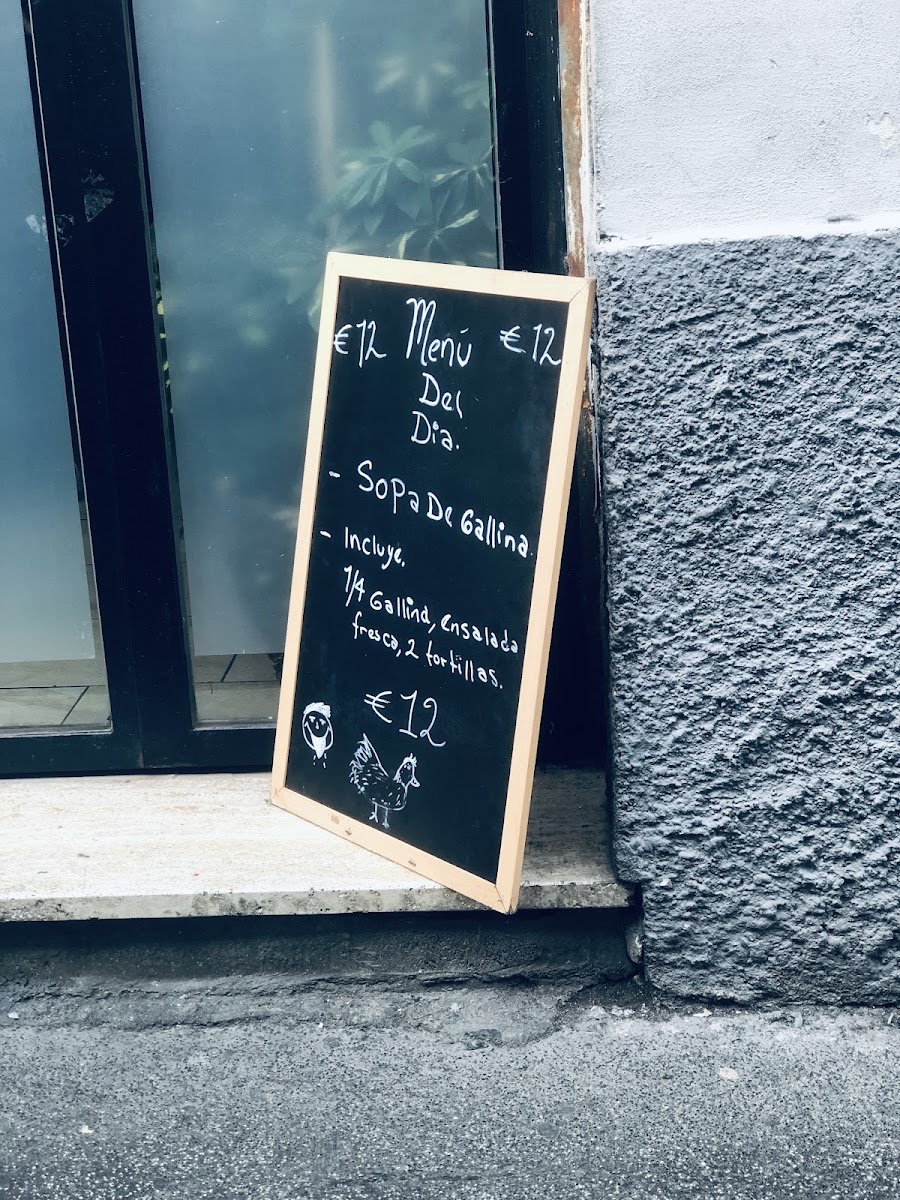 €12 Menú €12
Del
Dia.
- Sopa De Gallina.
- Incluye.
1/4 Gallina, ensalada
fresca, 2 tortillas.
€12